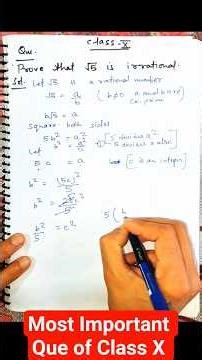 Class-X
Que.
Prove that √5 is irrational.
Sol. Let √5 is a rational number
√5 = a/b (b≠0 a and b are co-prime
b√5 = a
Square both sides
5b² = a² [5 divides a²
5 divides a also]
Let
5c = a [c is an integer]
b² = (5c)²/5
b² =
b²/5 = c²
5 (
Most Important
Que of Class X